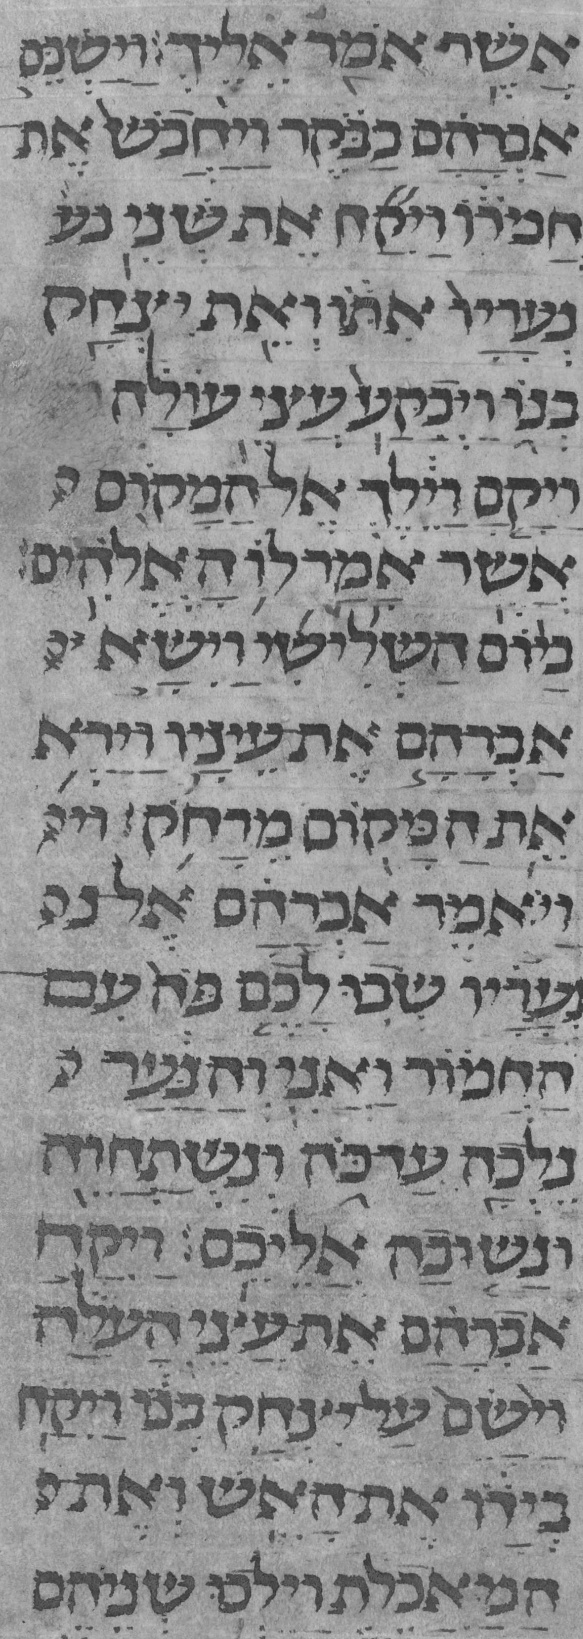 אשר אמר אליך׃ וישכם
אברהם בבקר ויחבש את
חמורו ויקח את שני נע
נעריו אתו ואת יצחק
בנו ויבקע עצי עולה
ויקם וילך אל המקום
אשר אמר לו האלהים׃
ביום השלישי וישא
אברהם את עיניו וירא
את המקום מרחק׃ וי
ויאמר אברהם אל נ
נעריו שבו לכם פה עם
החמור ואני והנער
נלכה עד כה ונשתחוה
ונשובה אליכם׃ ויקח
אברהם את עצי העלה
וישם על יצחק בנו ויקח
בידו את האש ואת
המאכלת וילכו שניהם